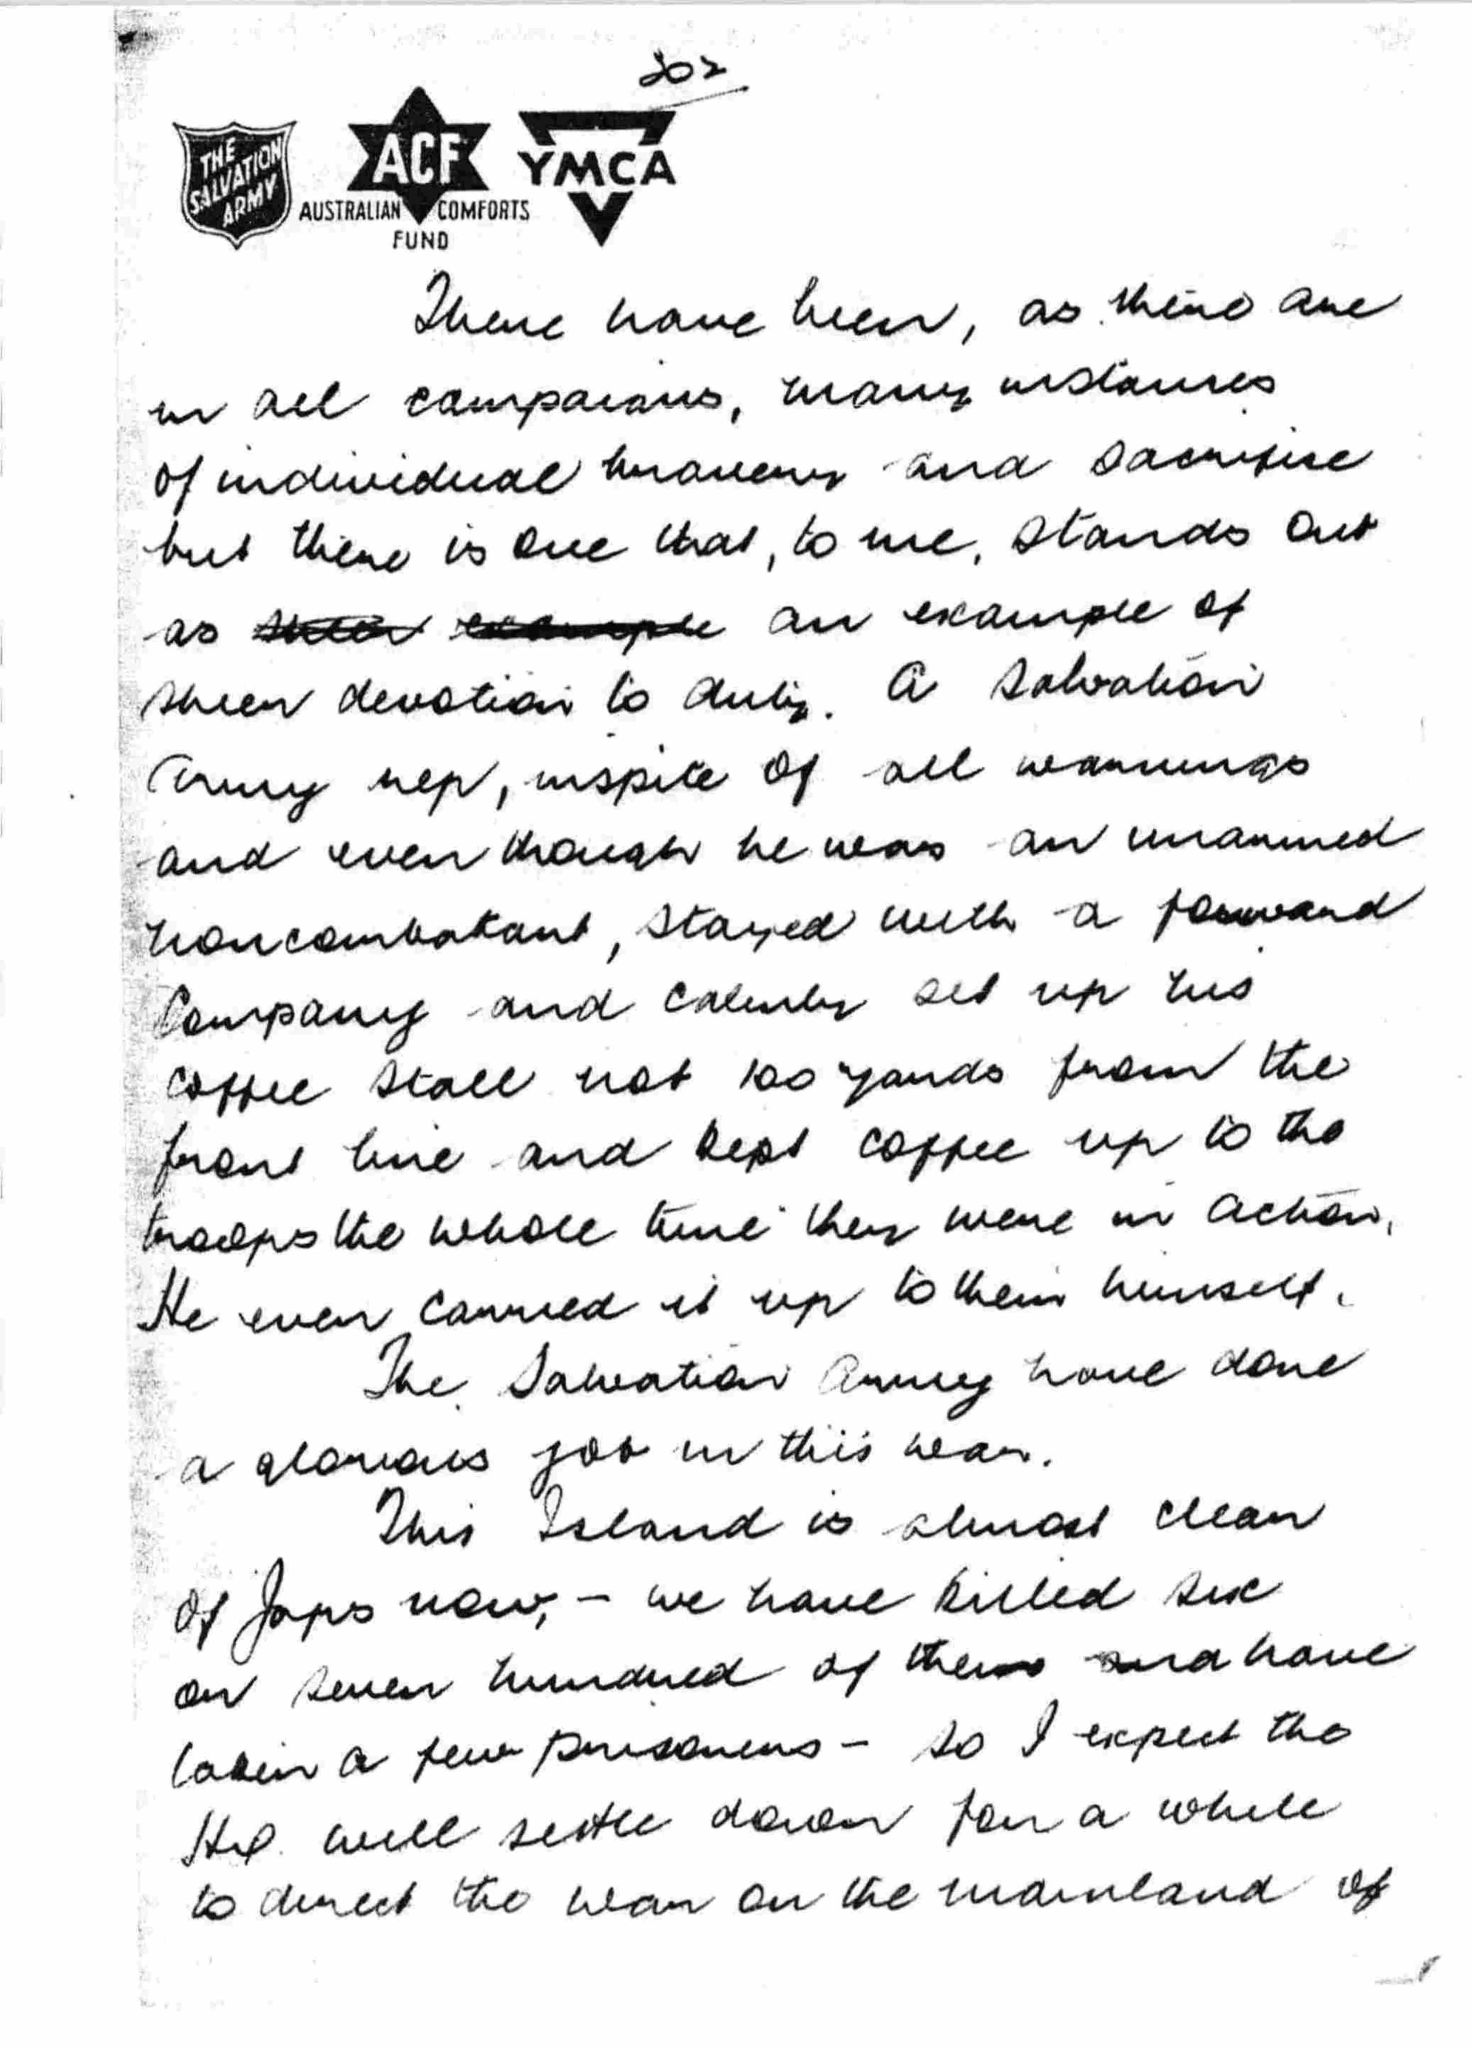 202
THE SALVATION ARMY
ACF
AUSTRALIAN COMFORTS
FUND
YMCA
There have been, as there are
in all campaians, many instances
of individual bravery and sacrifise
but there is one that, to me, stands out
as sheer example an example of
sheer devotion to duty. A Salvation
Army rep, inspite of all warnings
and even though he was an unarmed
noncombatant, stayed with a forward
Company and calmly set up his
coffee stall not 100 yards from the
front line and kept coffee up to the
troops the whole time they were in action.
He even carried it up to them himself.
The Salvation Army have done
a glorious job in this war.
This Island is almost clean
of Japs now, - we have killed six
or seven hundred of them and have
taken a few prisoners - so I expect the
HQ. will settle down for a while
to direct the war on the mainland of